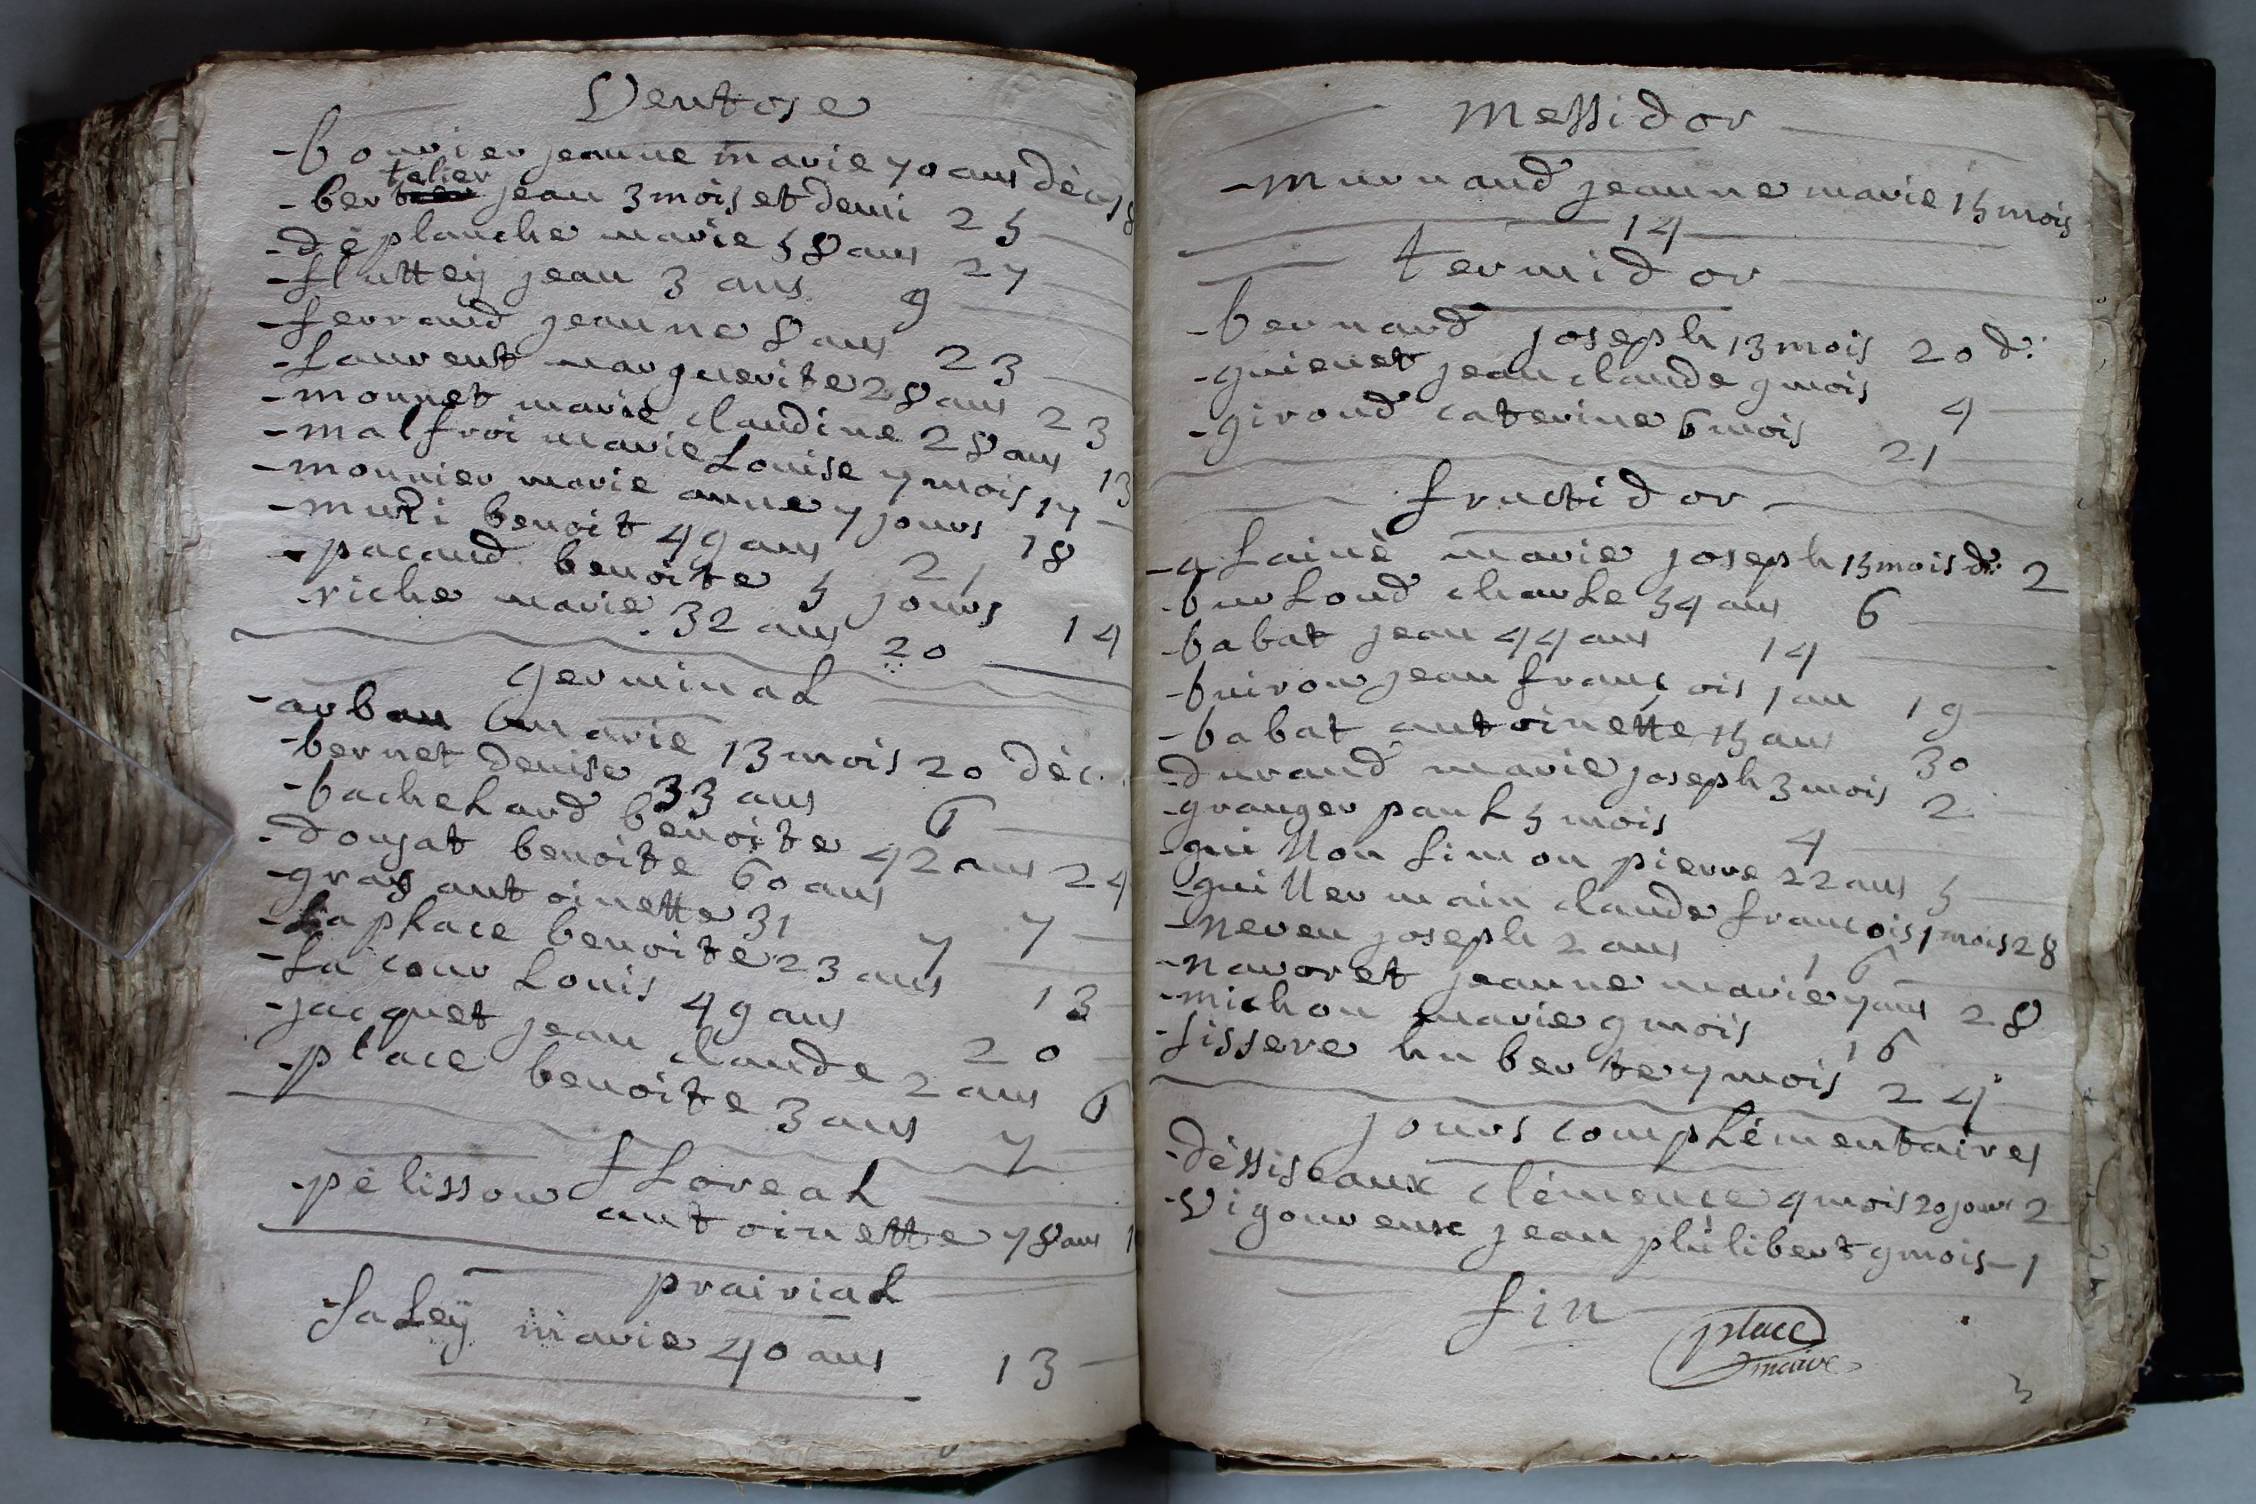 Ventose
- bouvier jeanne marie 70 ans décés 8
- bertelier jean 3 mois et demi 25
- déplanche marie 58 ans 27
- fluttey jean 3 ans 9
- ferraud jeanne 8 ans 23
- Laurent marguerite 28 ans 23
- monnet marie claudine 28 ans 13
- malfroi marie Louise 7 mois 17
- monnier marie anne 7 jours 18
- muri benoit 49 ans 21
- pacaud benoite 5 jours 14
- riche marie 32 ans 20
germinaL
- arban marie 13 mois 20 déc.
- bernet denise 33 ans 6
- bacheLard benoite 42 ans 24
- donjat benoite 60 ans 7
- gras antoinette 31 7
- LapLace benoite 23 ans 13
- La cour Louis 49 ans 20
- jacquet jean claude 2 ans 6
- place benoite 3 ans 7
fLoreaL
- pélisson antoinette 78 ans 1
prairiaL
- saLeÿ marie 40 ans 13
Messidor
- Murnand jeanne marie 15 mois
14
termidor
- bernard joseph 13 mois 20 d:
- guienet jean claude 9 mois 4
- giroud caterine 6 mois 21
fructidor
- aLainé marie joseph 15 mois d: 2
- burLoud charLe 54 ans 6
- babat jean 44 ans 14
- buiron jean francois 1 an 19
- babat antoinette 15 ans 30
- durand marie joseph 3 mois 2
- granger pauL 5 mois 4
- guillon simon pierre 22 ans 5
- guillermain claude francois 1 mois 28
- neveu joseph 2 ans 16
- navoret jeanne marie 7 ans 28
- michon marie 9 mois 16
- sissere huberte 7 mois 24
jours compLémentaires
- déssiseaux clémence 4 mois 20 jours 2
- Vigoureux jean philibert 9 mois - 1
fin
place
maire